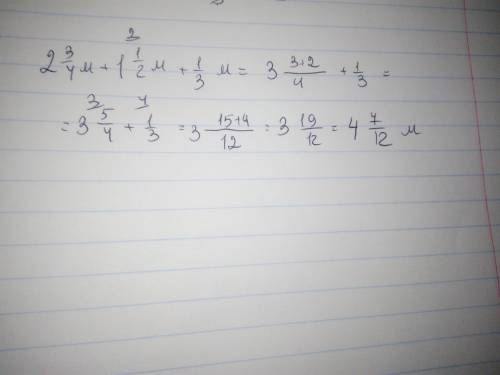 2 3/4 м + 1 1/2 (2 м + 1/3 м = 3 (3+2)/4 + 1/3 =
= 3 5/4 (3 + 1/3 (4 = 3 (15+4)/12 = 3 19/12 = 4 7/12 м